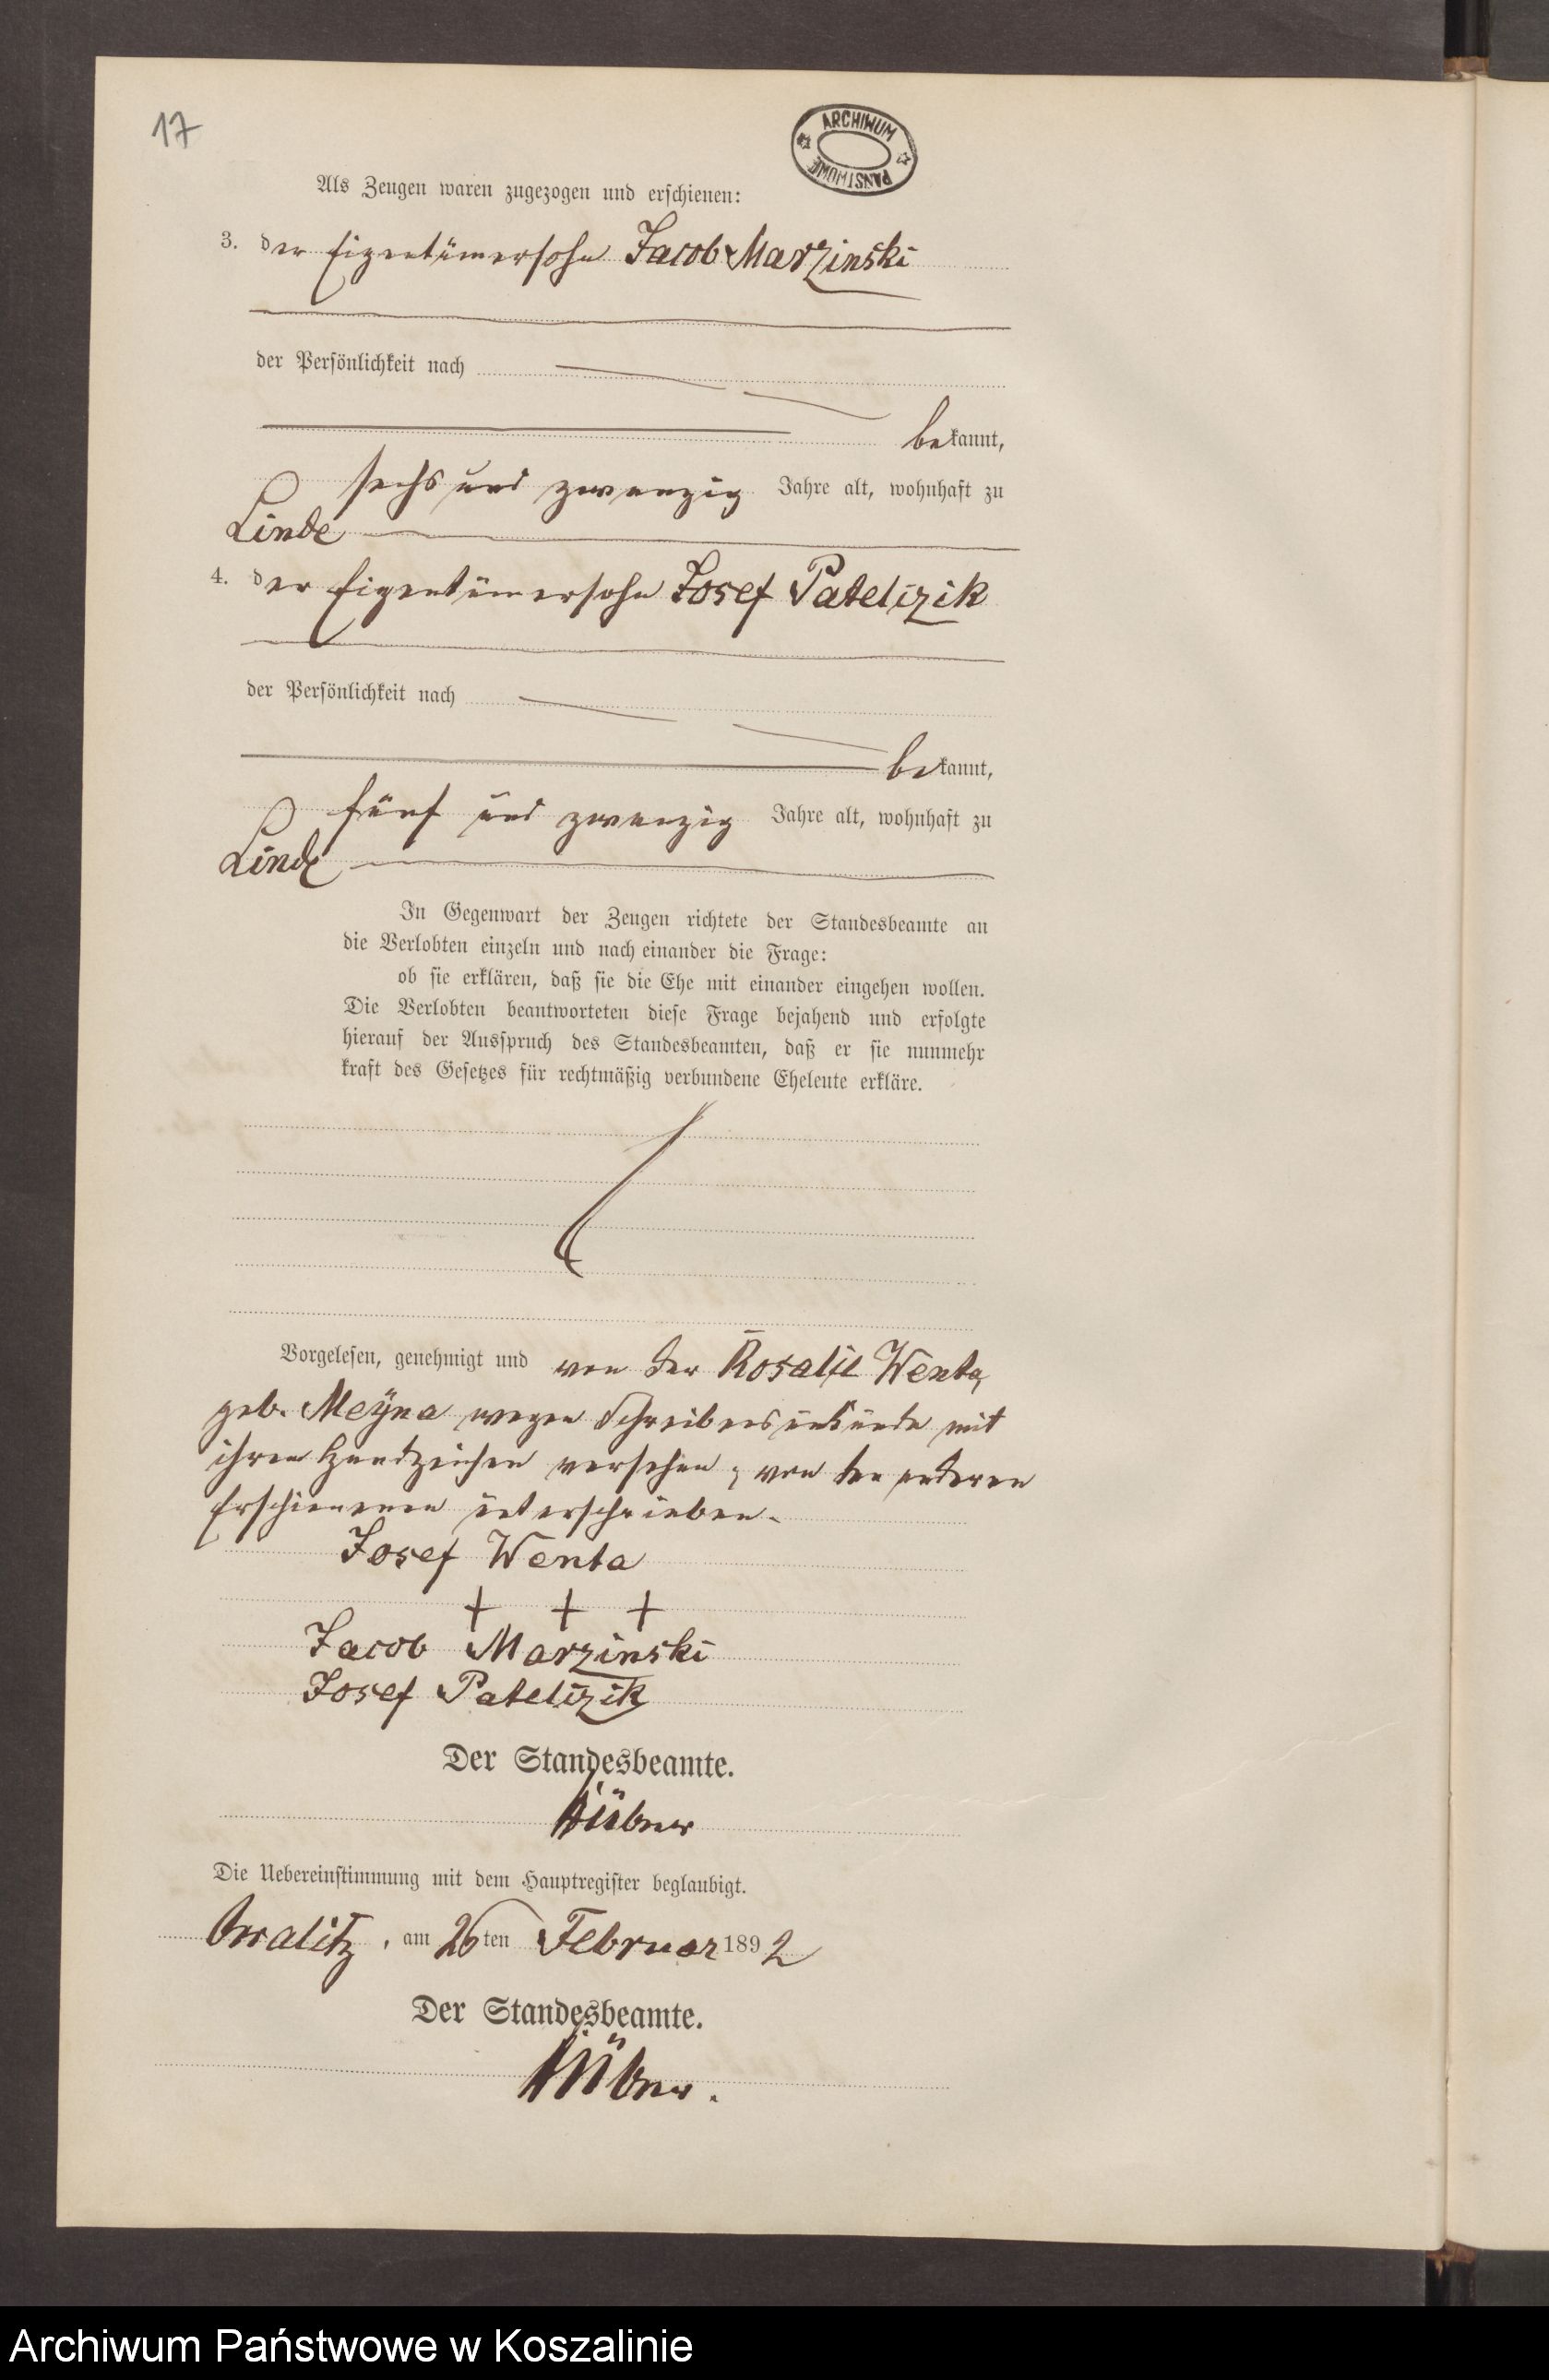 17
ARCHIWUM PAŃSTWOWE
Als Zeugen waren zugezogen und erschienen:
3. der Eigentümersohn Jacob Marzinski
der Persönlichkeit nach
bekannt,
sechs und zwanzig Jahre alt, wohnhaft zu
Linde
4. der Eigentümersohn Josef Patelizik
der Persönlichkeit nach
bekannt,
fünf und zwanzig Jahre alt, wohnhaft zu
Linde
In Gegenwart der Zeugen richtete der Standesbeamte an
die Verlobten einzeln und nach einander die Frage:
ob sie erklären, daß sie die Ehe mit einander eingehen wollen.
Die Verlobten beantworteten diese Frage bejahend und erfolgte
hierauf der Ausspruch des Standesbeamten, daß er sie nunmehr
kraft des Gesetzes für rechtmäßig verbundene Eheleute erkläre.
Vorgelesen, genehmigt und von der Rosalie Wenta,
geb. Meyna wegen Schreibensunkunde mit
ihren Handzeichen versehen, von den anderen
Erschienenen unterschrieben.
Josef Wenta
+ + +
Jacob Marzinski
Josef Patelizik
Der Standesbeamte.
Hübner
Die Uebereinstimmung mit dem Hauptregister beglaubigt.
am 26ten Februar 1892
Der Standesbeamte.
Hübner.
Archiwum Państwowe w Koszalinie